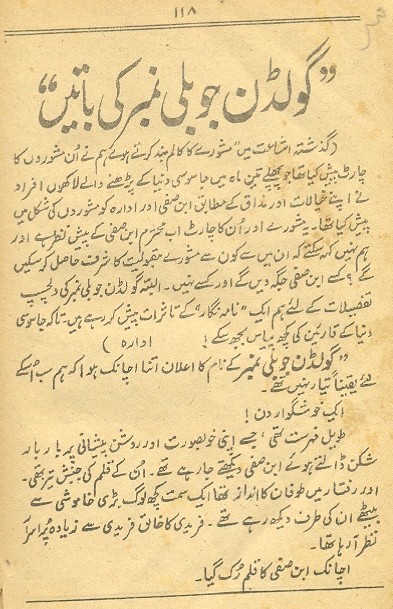 ۱۱۸
”گولڈن جوبلی نمبر کی باتیں“
(گذشتہ اشاعت میں ”مشورے کا کالم بند کرتے ہوئے ہم نے اُن مشوروں کا
چارٹ پیش کیا تھا جو پچھلے تین ماہ میں جاسوسی دنیا کے پڑھنے والے لاکھوں افراد
نے اپنے خیالات اور مذاق کے مطابق ابن صفی اور ادارہ کو مشوروں کی شکل میں
پیش کیا تھا۔ یہ مشورے اور اُن کا چارٹ اب محترم ابن صفی کے پیش نظر ہے اور
ہم نہیں کہہ سکتے کہ ان میں سے کون سے مشورے مقبولیت کا شرف حاصل کر سکیں
گے؟ کسے ابن صفی جگہ دیں گے اور کسے نہیں۔ البتہ گولڈن جوبلی نمبر کی دلچسپ
تفصیلات کے لئے ہم ایک ”نامہ نگار“ کے تاثرات پیش کر رہے ہیں۔ تاکہ جاسوسی
دنیا کے قارئین کی کچھ پیاس بجھ سکے! ادارہ)
”گولڈن جوبلی نمبر کے نام کا اعلان اتنا اچانک ہوا کہ ہم سب اُسکے
لئے یقیناً تیار نہیں تھے۔
ایک خوشگوار دن!
طویل فہرست تھی، جسے اپنی خوبصورت اور روشن پیشانی پہ بار بار
شکن ڈالتے ہوئے ابن صفی دیکھتے جا رہے تھے۔ اُن کے قلم کی جنبش تیز تھی۔
اور رفتار میں طوفان کا انداز تھا ایک سمت کچھ لوگ بڑی خاموشی سے
بیٹھے ان کی طرف دیکھ رہے تھے۔ فریدی کا خالق فریدی سے زیادہ پُر اسرار
نظر آ رہا تھا۔
اچانک ابن صفی کا قلم رُک گیا۔